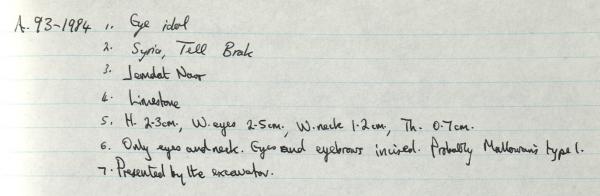 A. 93-1984 1. Eye idol
2. Syria, Tell Brak
3. Jemdat Nasr
4. Limestone
5. H. 2.3cm, W. eyes 2.5cm, W. neck 1.2cm, Th. 0.7cm.
6. Only eyes and neck. Eyes and eyebrows incised. Probably Mallowan's type 1.
7. Presented by the excavator.